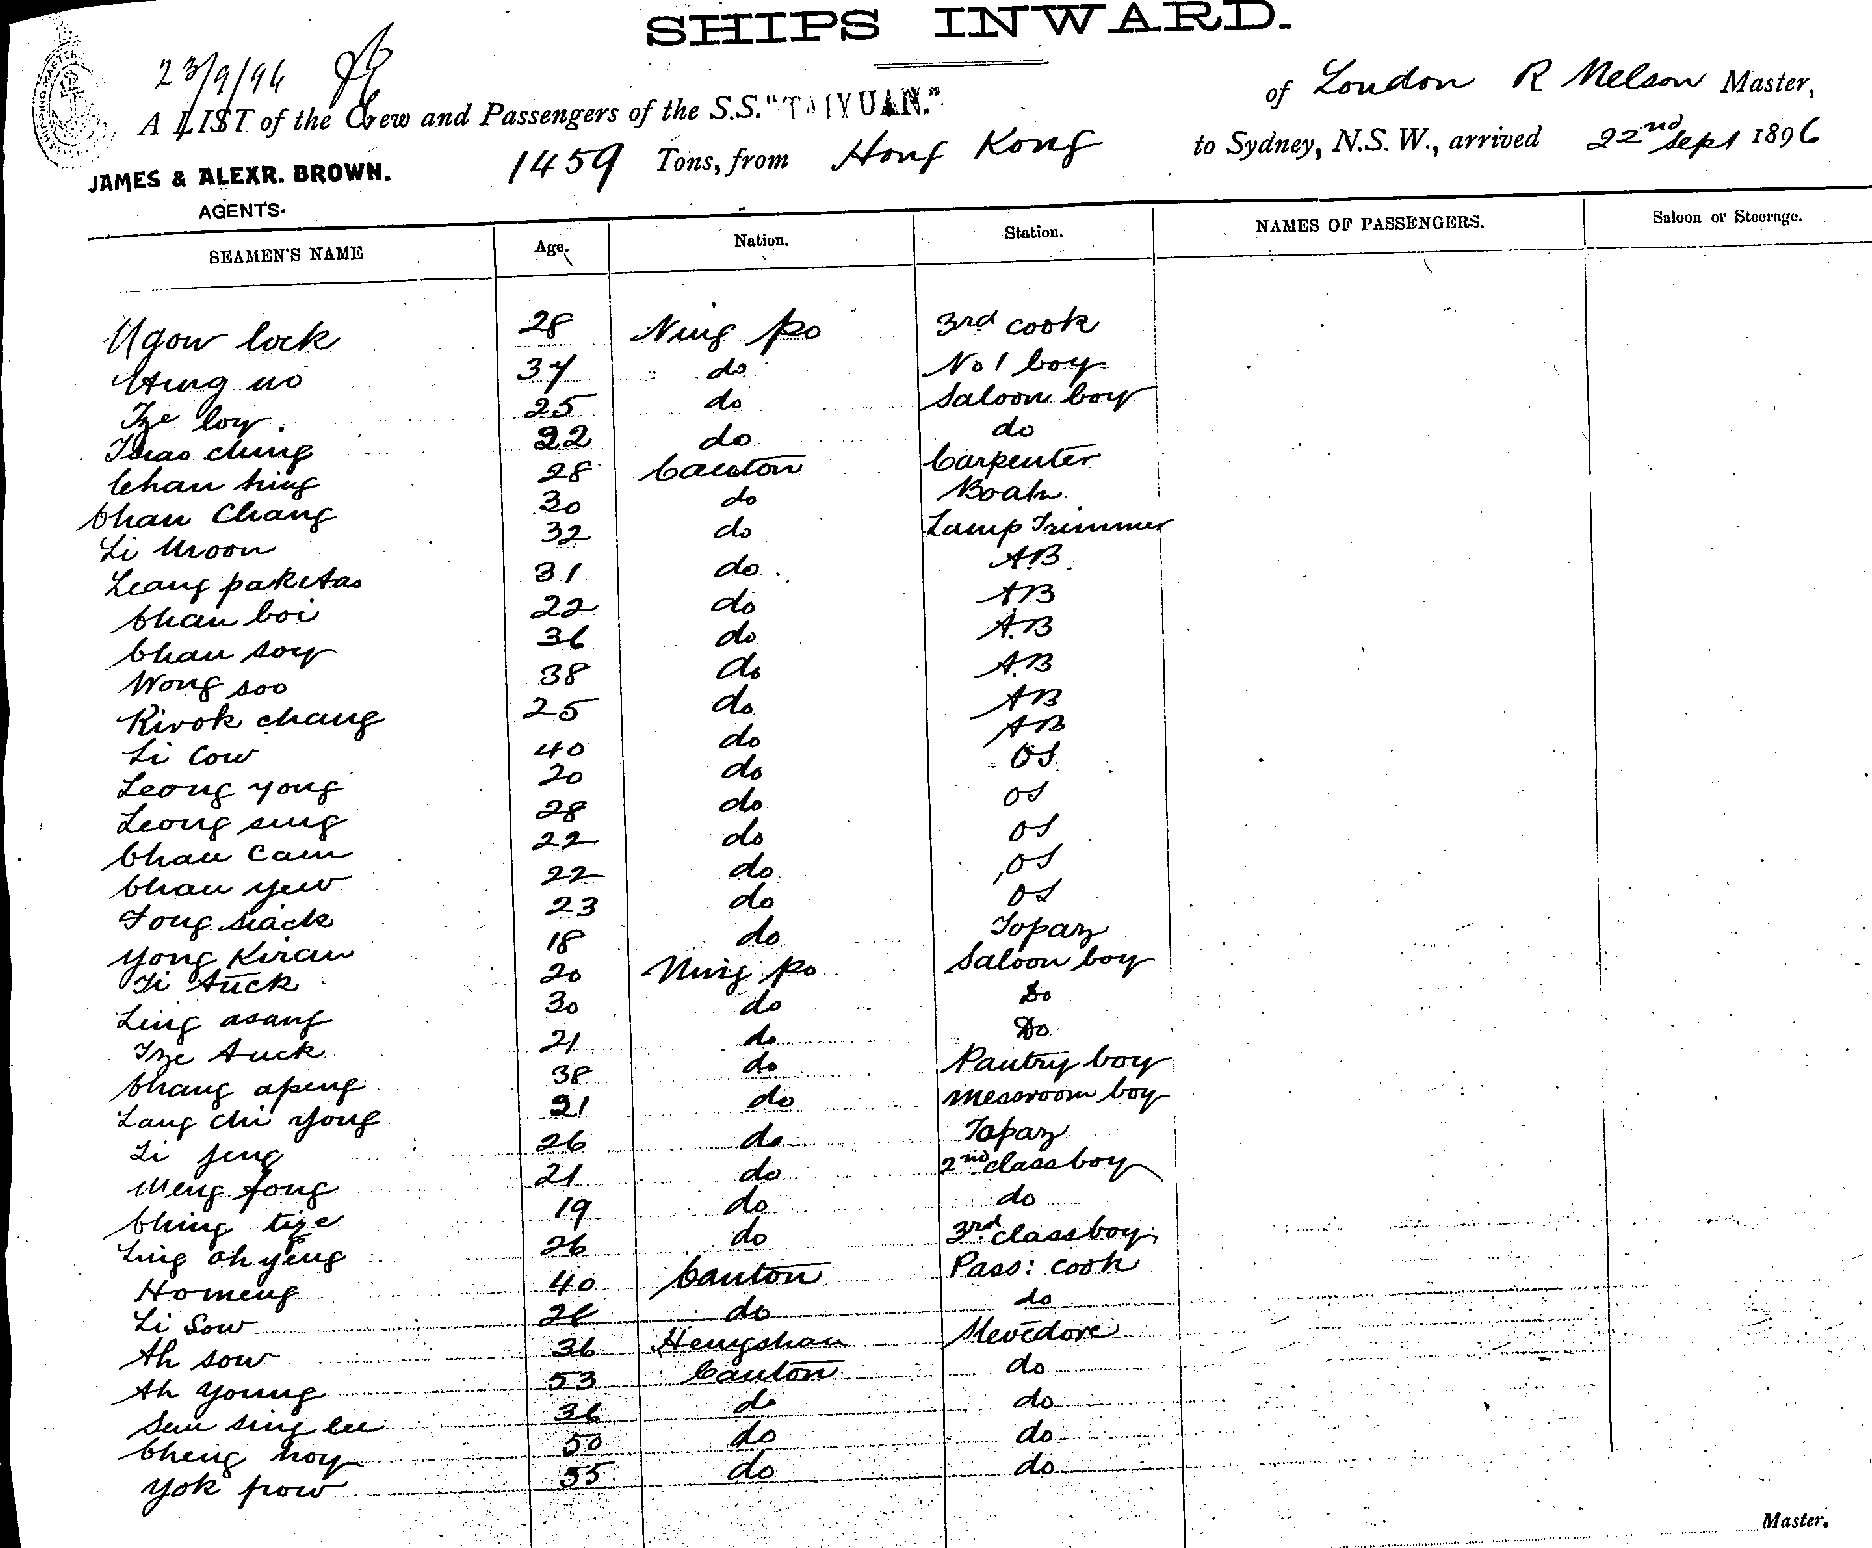 SHIPS INWARD.
23/9/96
A LIST of the Crew and Passengers of the S.S. "TAIYUAN." of London R Nelson Master,
JAMES & ALEXR. BROWN.
AGENTS.
1459 Tons, from Hong Kong to Sydney, N.S.W., arrived 22nd Sept 1896
SEAMEN'S NAME Age. Nation. Station. NAMES OF PASSENGERS. Saloon or Steerage.
Ugow lock 28 Ning po 3rd cook
37 do No 1 boy
Tze loy. 25 do Saloon boy
ching 22 do do
Chan hing 28 Canton Carpenter
Chan Chang 30 do
Li Moon 32 do Lamp Trimmer
Leang 31 do AB.
Chan boi 22 do AB
Chan soy 36 do A.B
Wong soo 38 do A.B
Kwok chang 25 do AB
Li Cow 40 do AB
Leong yong 20 do OS
Leong sing 28 do OS
Chan Cam 22 do OS
Chan yew 22 do OS
Fong siack 23 do OS
Yong Kwan 18 do Topaz
Li Auck 20 Ning po Saloon boy
Ling asang 30 do Do
Tze Auck 21 do Do
Chang apeng 38 do Pantry boy
Lang Chi Yong 21 do messroom boy
Li jeng 26 do Topaz
Meng fong 21 do 2nd class boy
Ching tize 19 do do
Ling ah yeng 26 do 3rd class boy
Ho meng 40 Canton Pass: cook
Li Sow 26 do do
Ah sow 36 Hengshan Stevedore
Ah Young 53 Canton do
Sun sing lee 36 do do
Cheng hoy 50 do do
Yok pow 55 do do
Master.